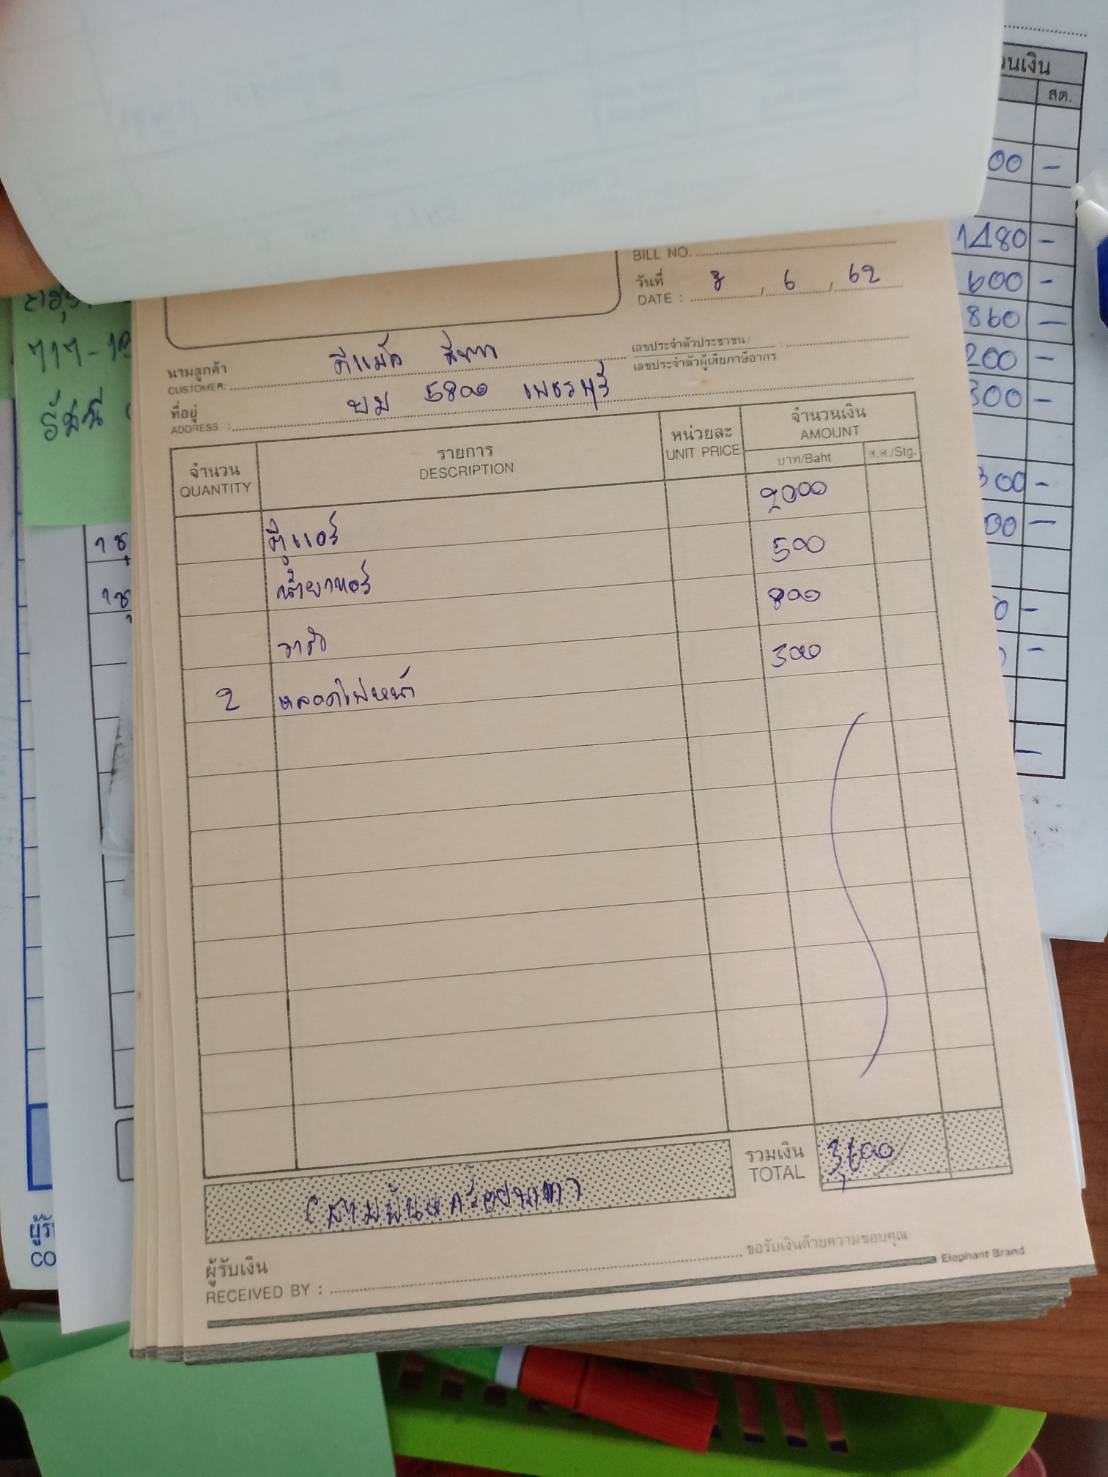 BILL NO.
วันที่
DATE : 8 , 6 , 62
นามลูกค้า
CUSTOMER: ดีแม็ค สีเทา
เลขประจำตัวประชาชน/
เลขประจำตัวผู้เสียภาษีอากร
ที่อยู่
ADDRESS : ผม 5800 เพชรบุรี
จำนวน
QUANTITY
รายการ
DESCRIPTION
หน่วยละ
UNIT PRICE
จำนวนเงิน
AMOUNT
บาท/Baht
ส.ต./Stg.
ตู้แอร์ 2000
น้ำยาแอร์ 500
วาล์ว 800
2 หลอดไฟหน้า 300
รวมเงิน
TOTAL 3,600
ผู้รับเงิน
RECEIVED BY :
ขอรับเงินด้วยความขอบคุณ
Elephant Brand
นเงิน
สต.
00 -
1480 -
600 -
860 -
200 -
300 -
300 -
00 -
0 -
717-
รัศมี
1 ชุ
1ชุ
CO